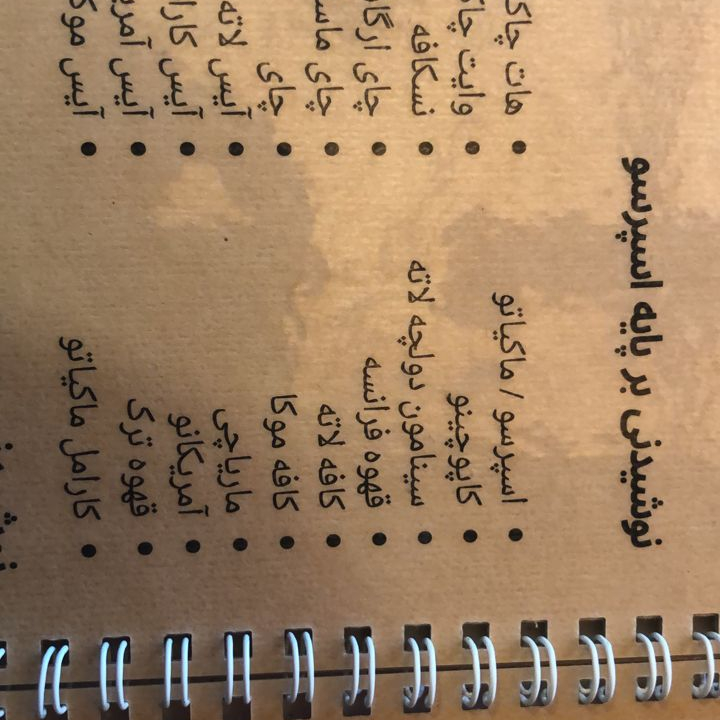 نوشیدنی بر پایه اسپرسو
اسپرسو / ماکیاتو
کاپوچینو
سینامون دولچه لاته
قهوه فرانسه
کافه لاته
کافه موکا
ماریاچی
آمریکانو
قهوه ترک
کارامل ماکیاتو
هات
وایت
نسکافه
چای
چای
چای
آیس لاته
آیس
آیس
آیس